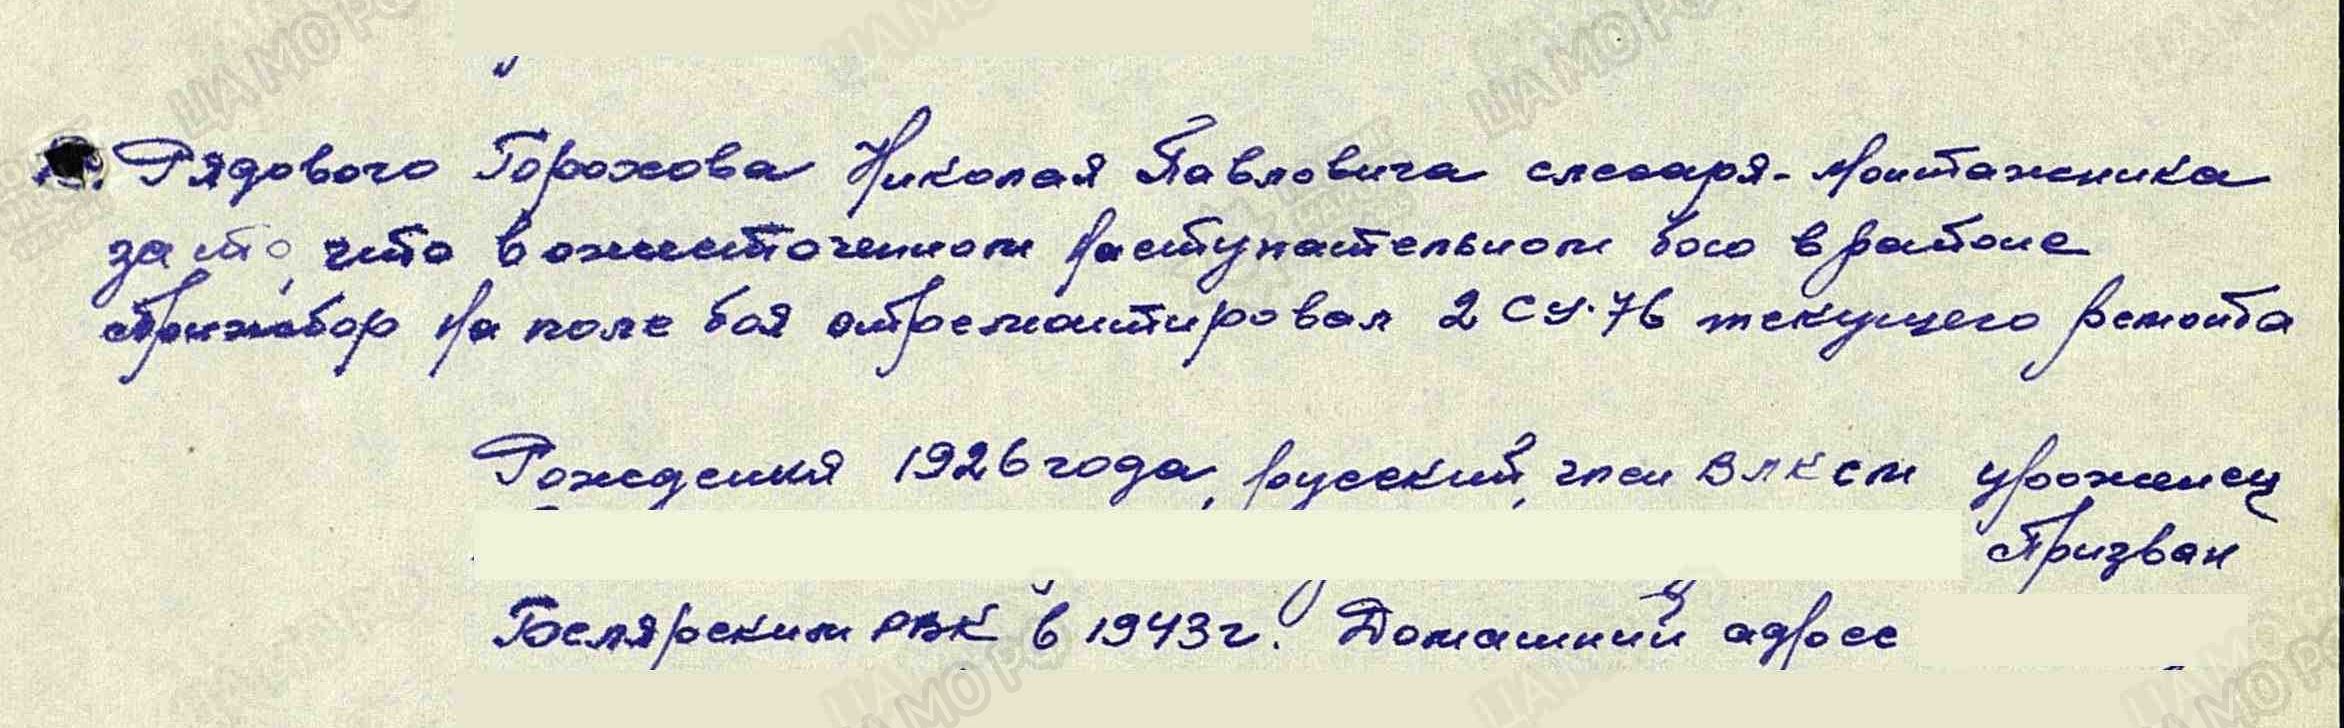 Рядового Горохова Николая Павловича слесаря-монтажника
за то, что в ожесточенном наступательном бою в районе
на поле боя отремонтировал 2 СУ-76 текущего ремонта
Рождения 1926 года, русский, член ВЛКСМ уроженец
Призван
РВК в 1943 г. Домашний адрес